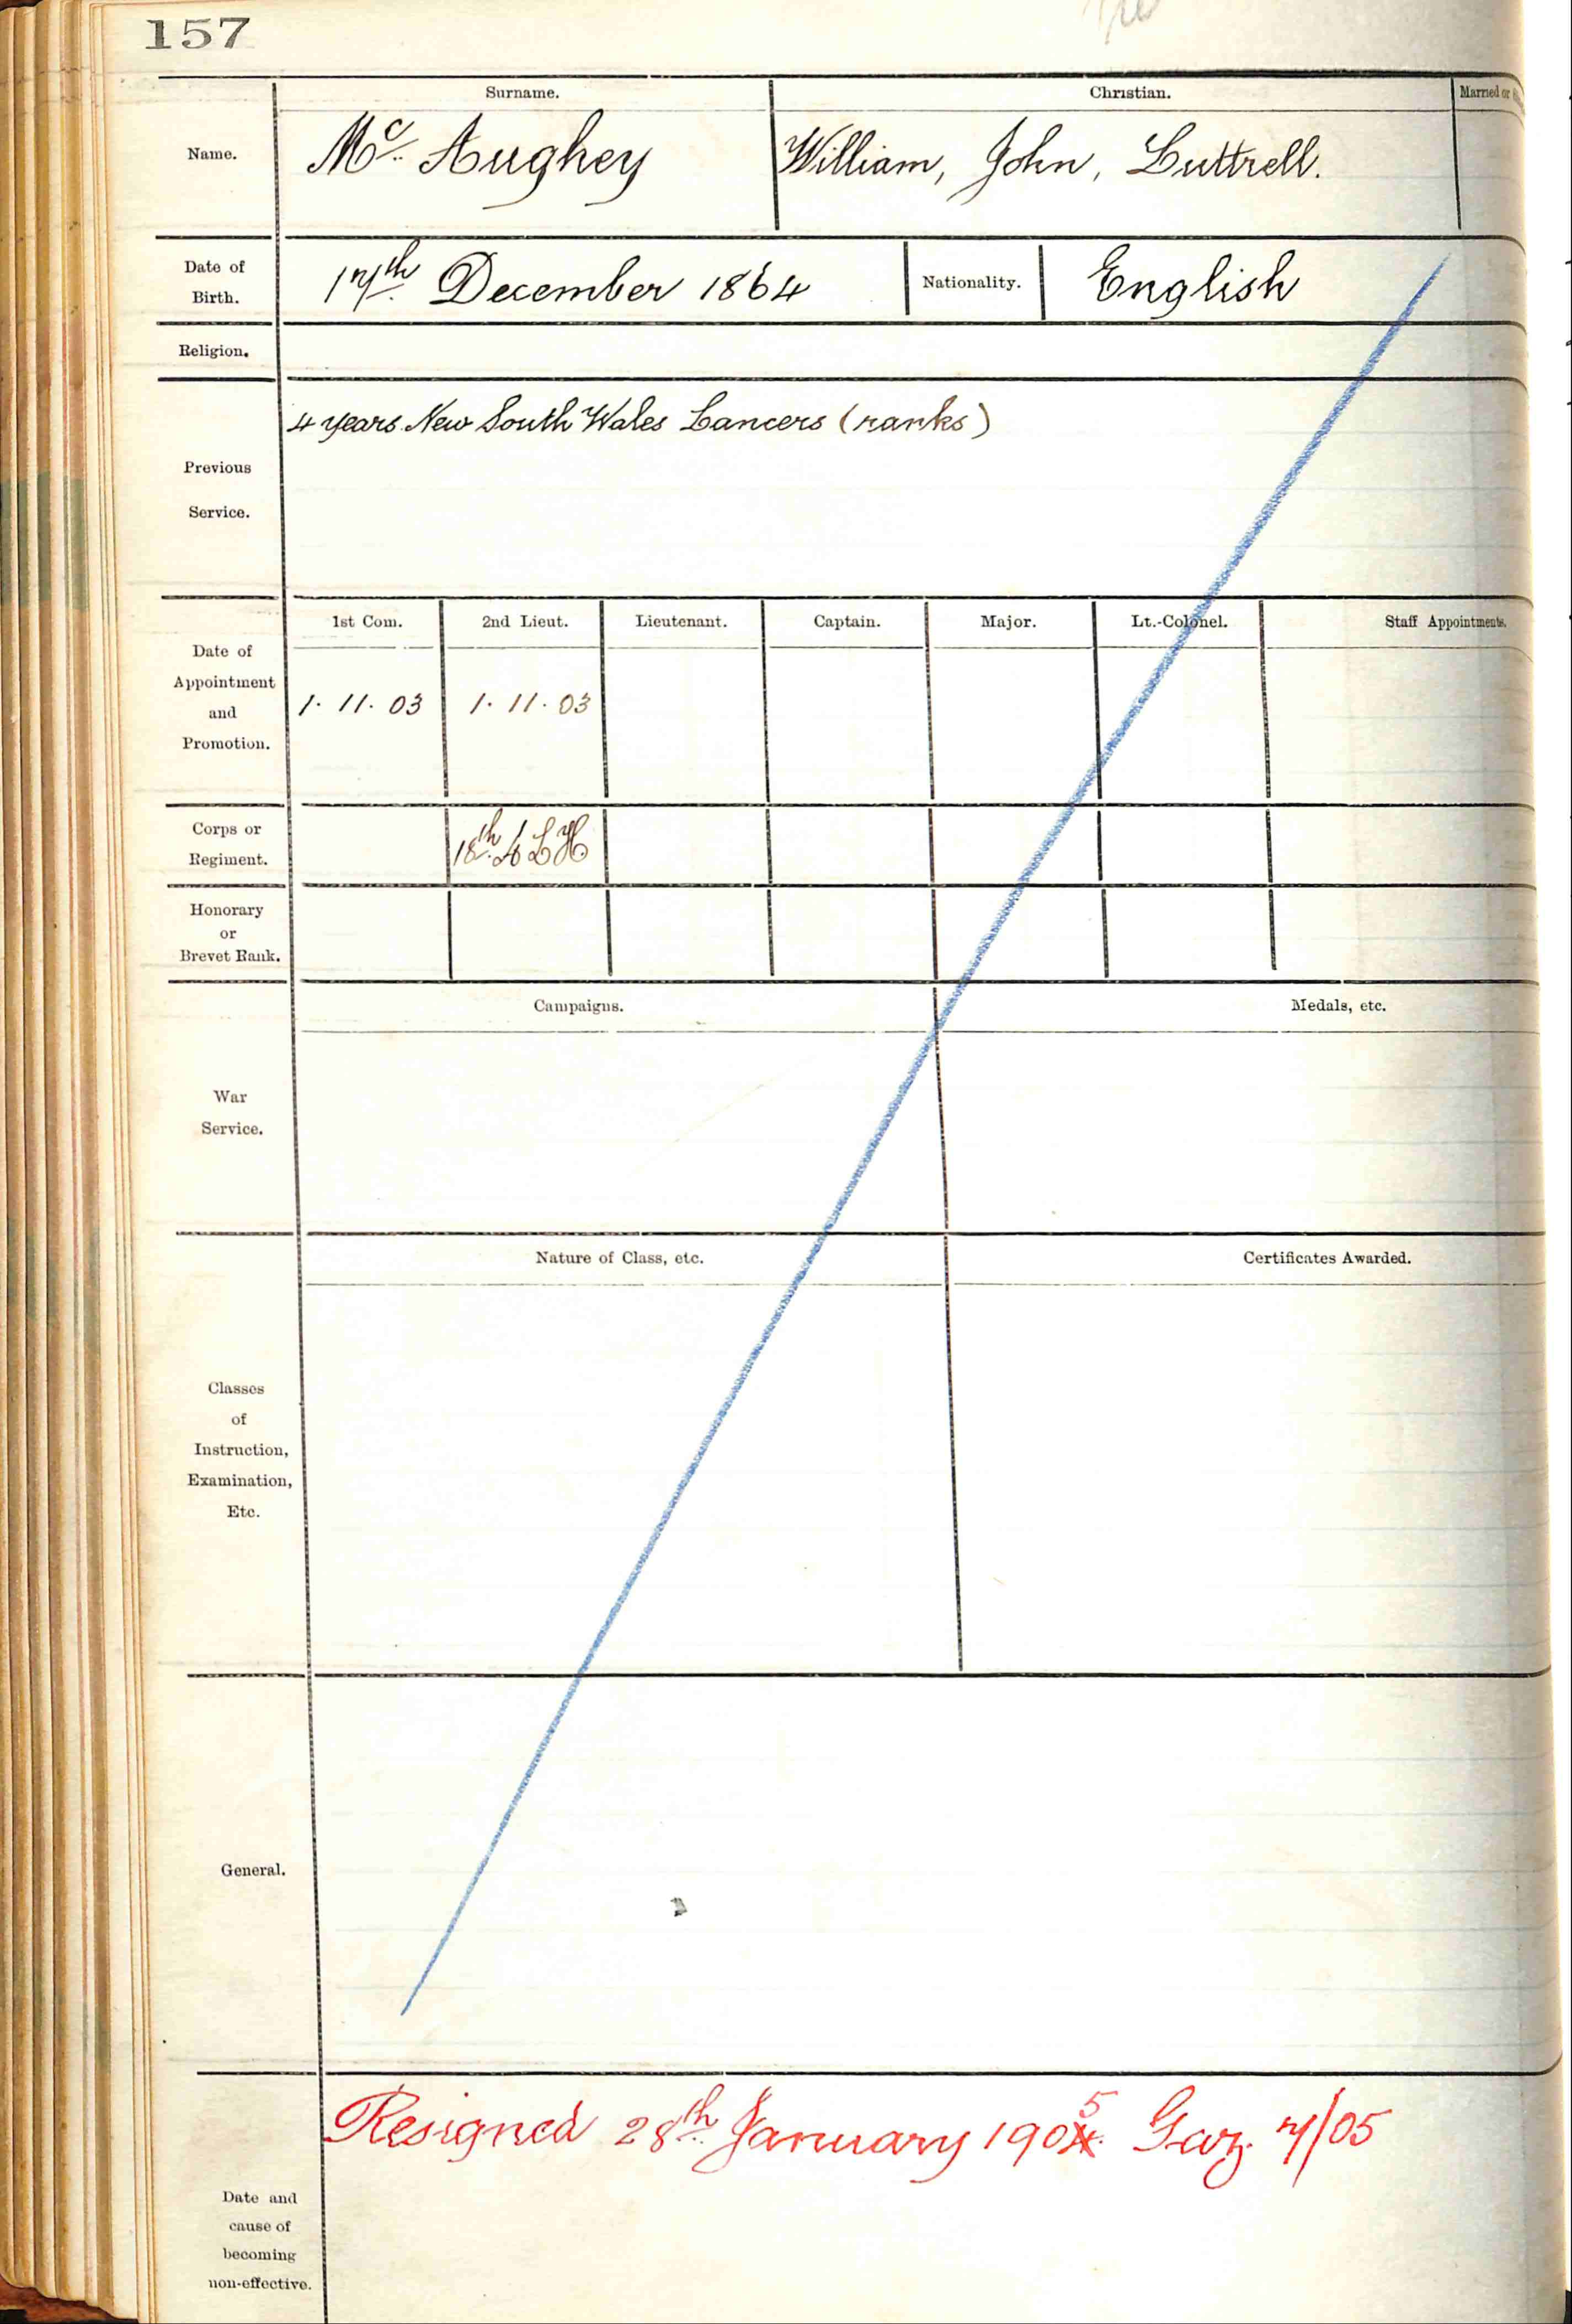 157
Surname. Christian. Married or
Name. Mc Aughey William, John, Luttrell.
Date of Birth. 17th December 1864 Nationality. English
Religion.
4 years New South Wales Lancers (ranks)
Previous
Service.
1st Com. 2nd Lieut. Lieutenant. Captain. Major. Lt.-Colonel. Staff Appointments.
Date of
Appointment
and
Promotion.
1. 11. 03 1. 11. 03
Corps or
Regiment.
18th A L H
Honorary
or
Brevet Rank.
Campaigns. Medals, etc.
War
Service.
Nature of Class, etc. Certificates Awarded.
Classes
of
Instruction,
Examination,
Etc.
General.
Resigned 28th January 1905 Gaz. 7/05
Date and
cause of
becoming
non-effective.